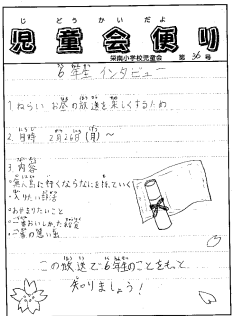 じどうかいだよ
児童会便り
栄南小学校児童会 第36号
6年生インタビュー
1.ねらい お昼の放送を楽しくするため
2.日時 2月26日(月)～
3.内容
・無人島に行くならなにを持っていく
・入りたい部活
・おわすれないこと
・一番おいしかった給食
・一番の思い出
この放送で6年生のことをもっと
知りましょう!